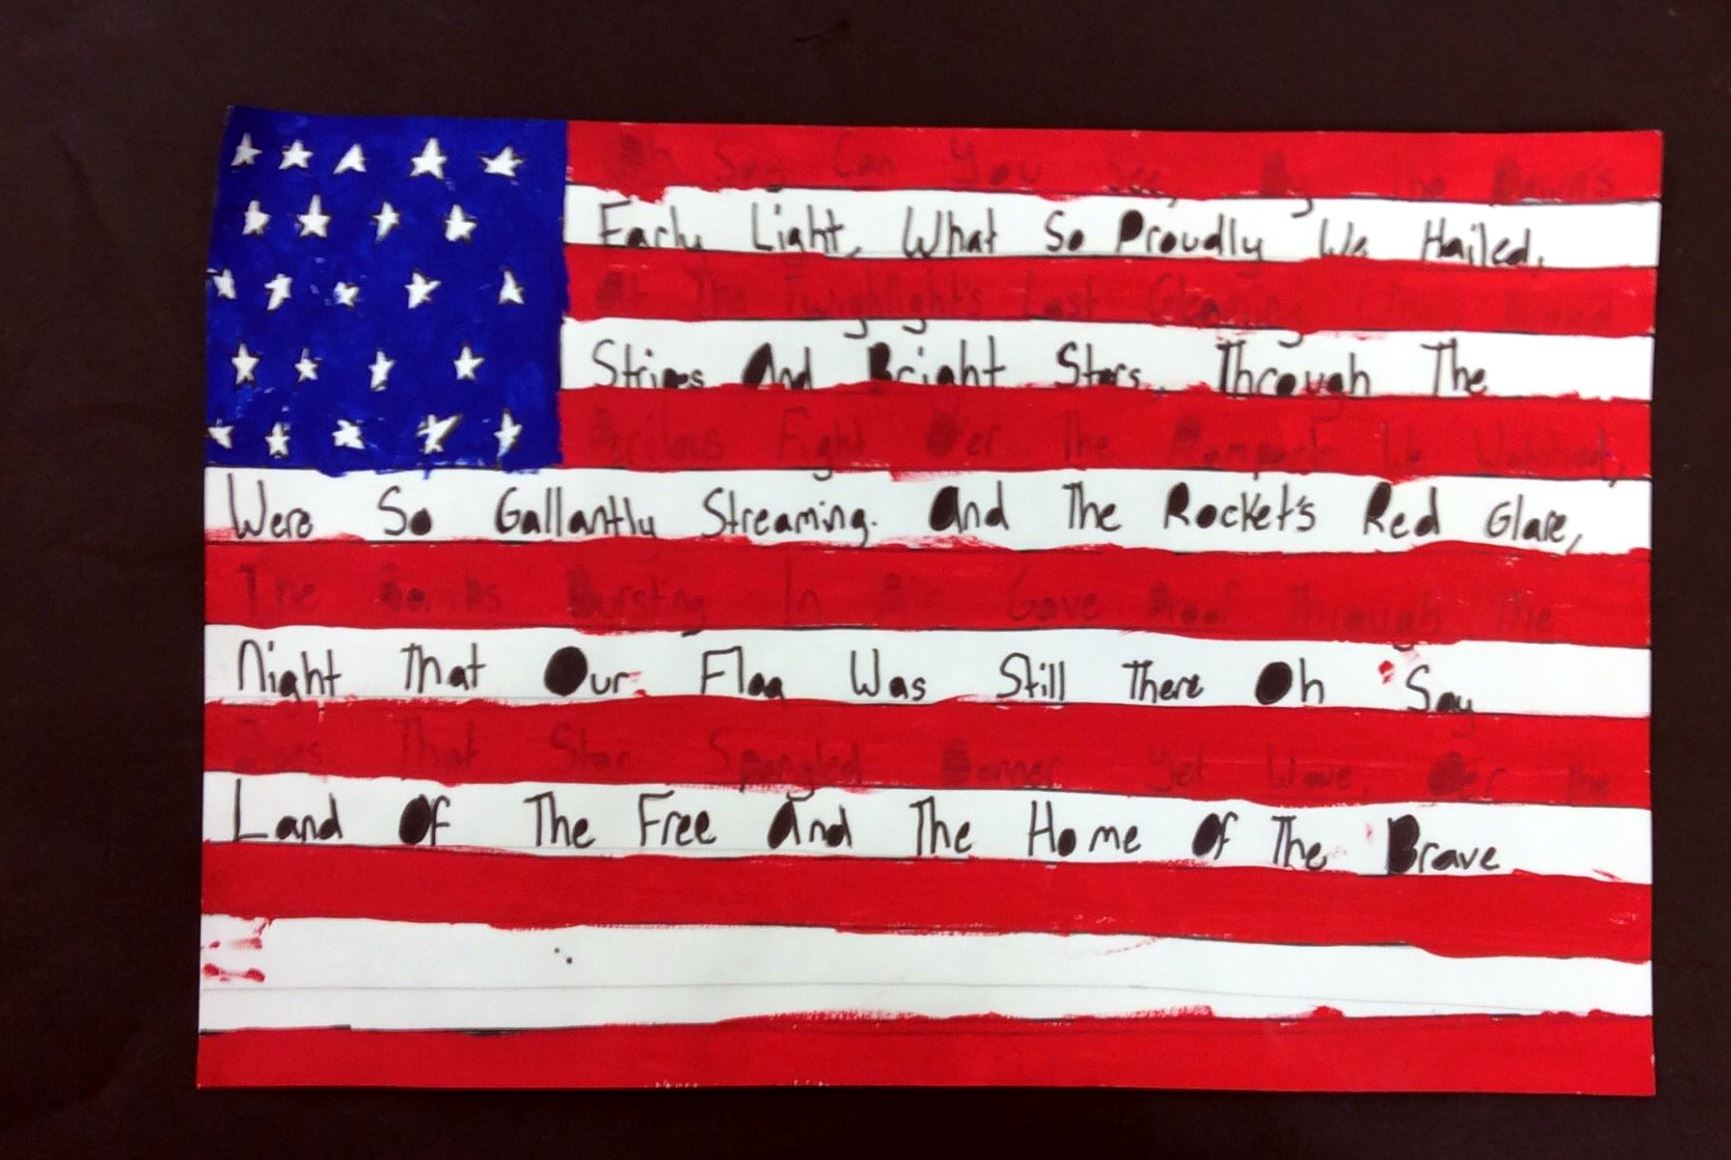 Oh Say Can You See, By The Dawn's
Early Light, What So Proudly We Hailed,
At The Twighlight's Last Gleaming Broad
Stripes And Bright Stars, Through The
Perilous Fight O'er The Ramparts We Watched,
Were So Gallantly Streaming. And The Rocket's Red Glare,
The Bombs Bursting In Air Gave Proof Through The
Night That Our Flag Was Still There Oh Say
Does That Star Spangled Banner Yet Wave, O'er The
Land Of The Free And The Home Of The Brave